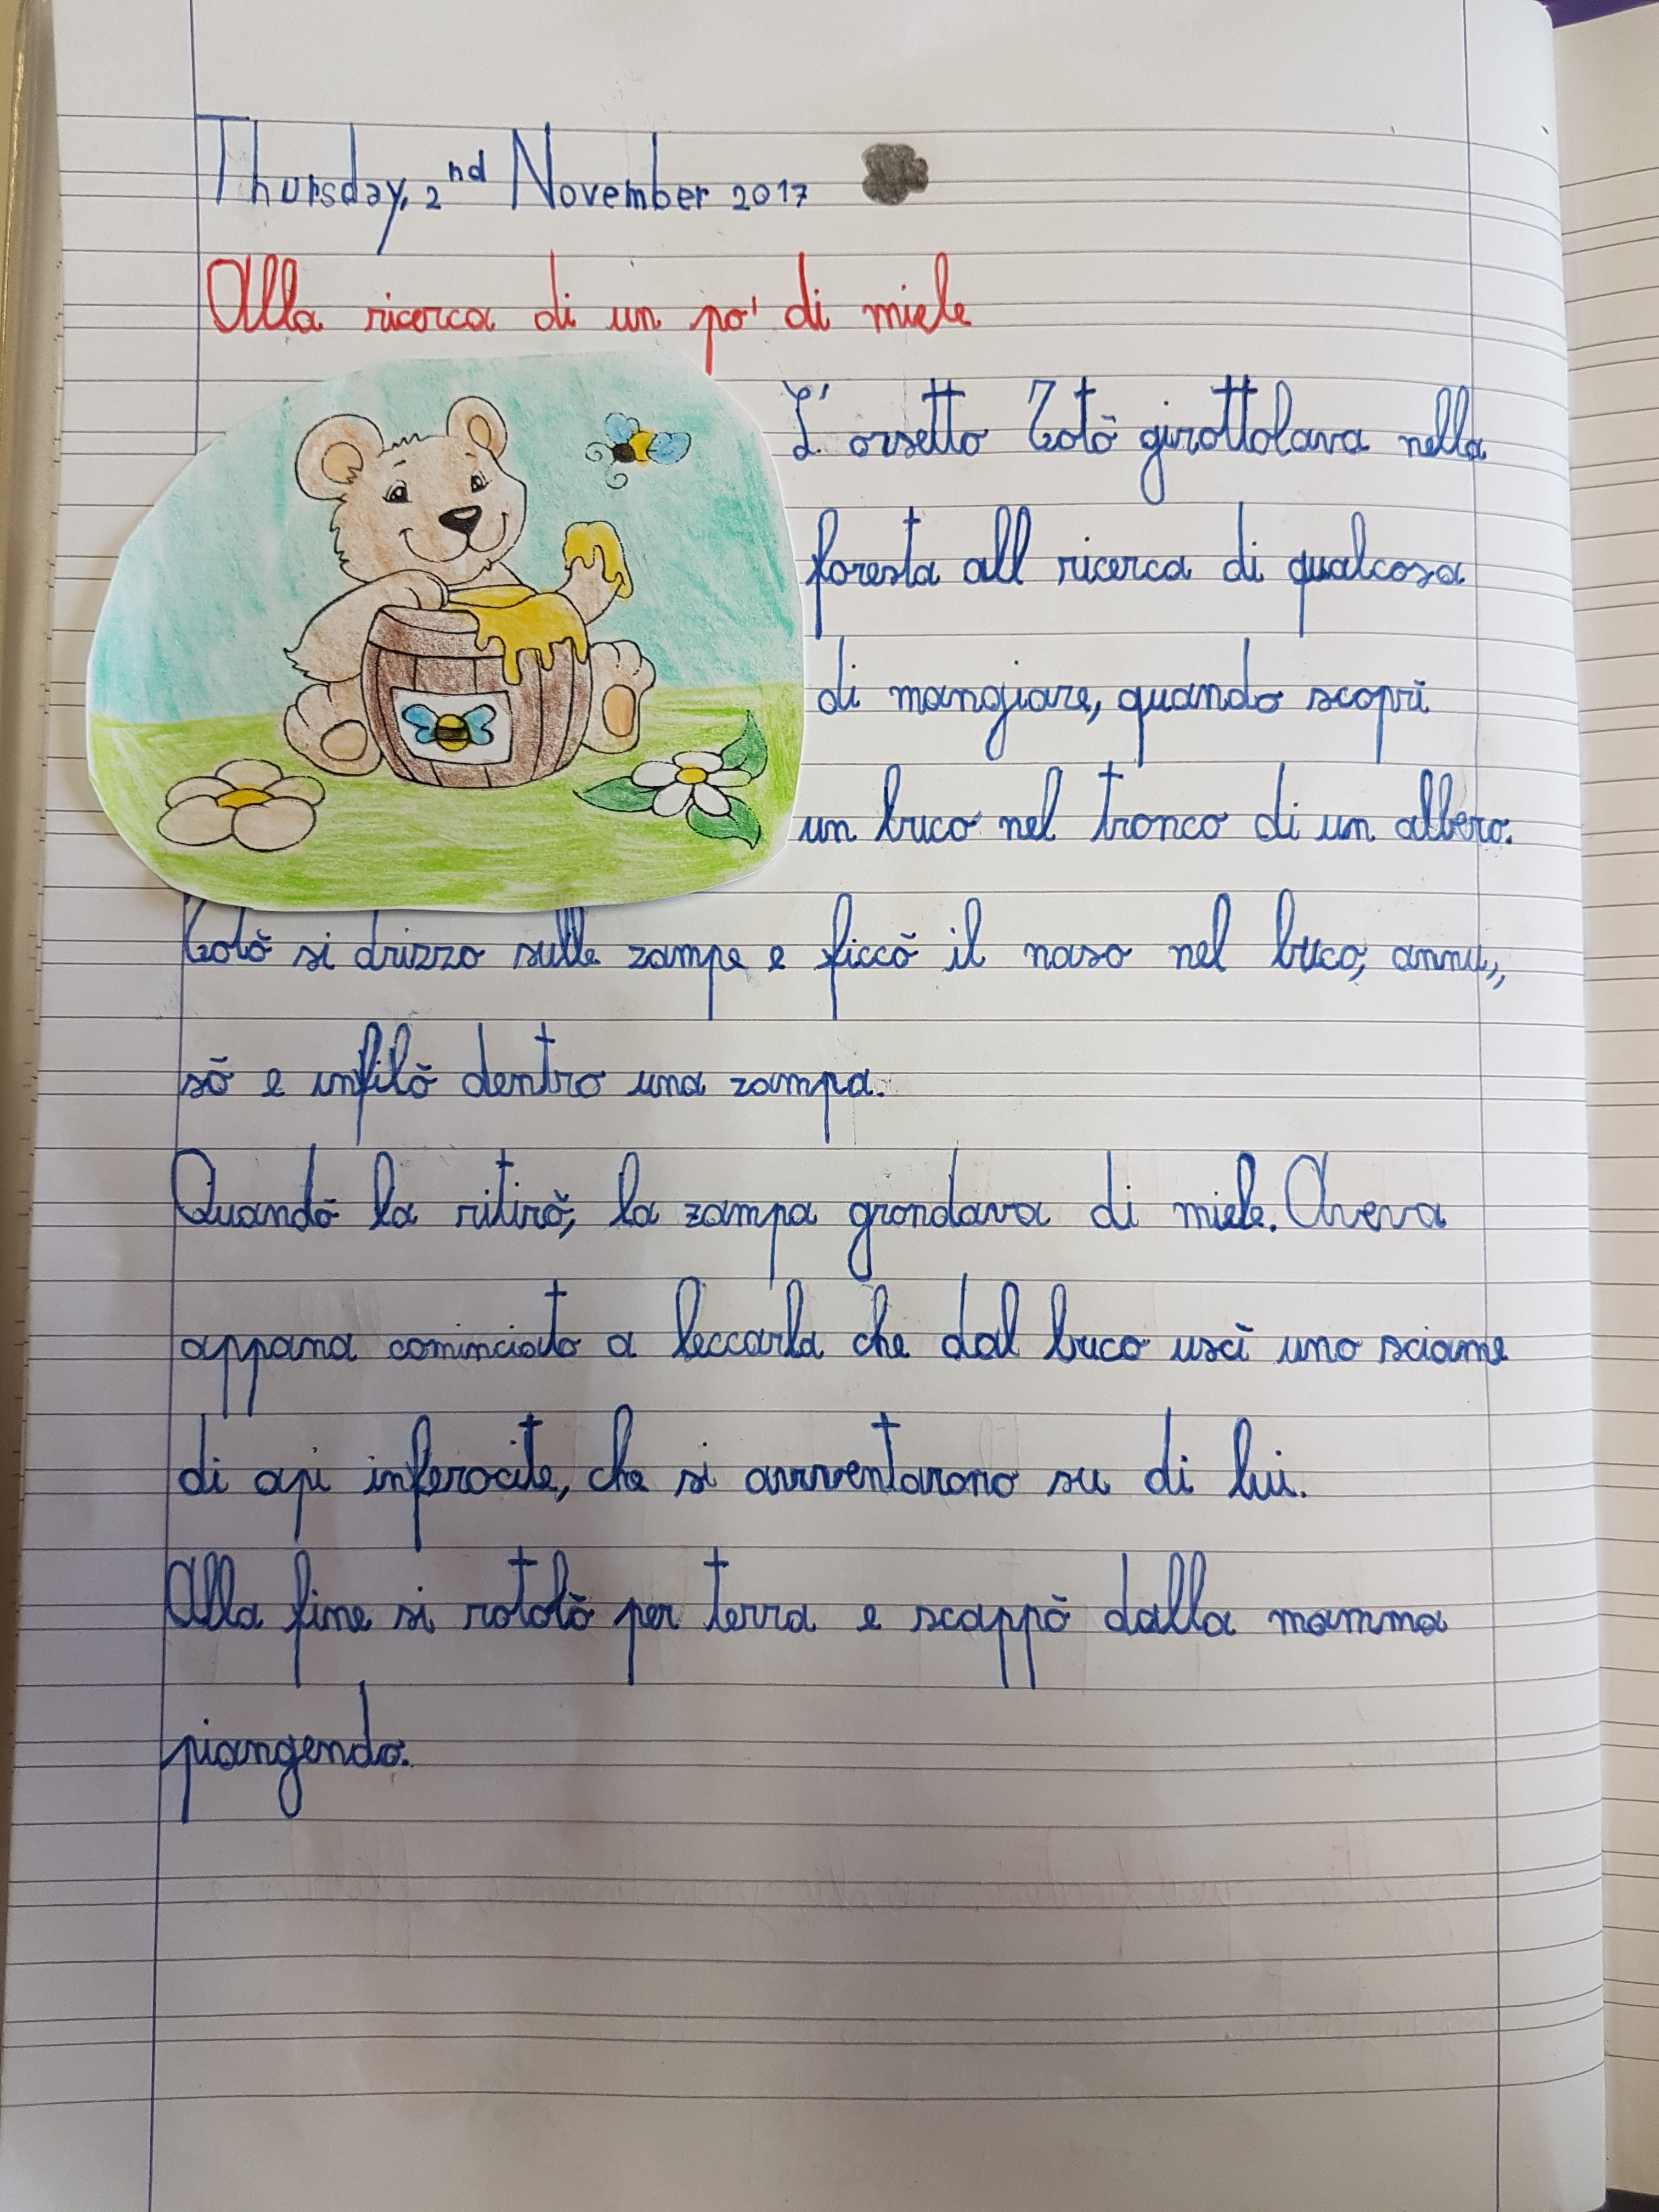 Thursday, 2nd November 2017
Alla ricerca di un po' di miele
L'orsetto Totò girottolava nella
foresta all ricerca di qualcosa
di mangiare, quando scoprì
un buco nel tronco di un albero.
Totò si drizzo sulle zampe e ficcò il naso nel buco, annu,,
sò e infilò dentro una zampa.
Quandò la ritirò, la zampa grondava di miele. Aveva
appana cominciato a leccarla che dal buco uscì uno sciame
di api inferocite, che si avventarono su di lui.
Alla fine si rotolò per terra e scappò dalla mamma
piangendo.